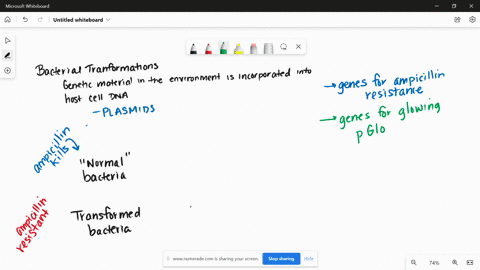 Microsoft Whiteboard
Untitled whiteboard
Bacterial Tranformations
Genetic material in the environment is incorporated into
host cell DNA
- PLASMIDS
→ genes for ampicillin
resistance
→ genes for glowing
pGlo
ampicillin
kills
"Normal"
bacteria
ampicillin
resistant
Transformed
bacteria
www.numerade.com is sharing your screen.
Stop sharing
Hide
74%